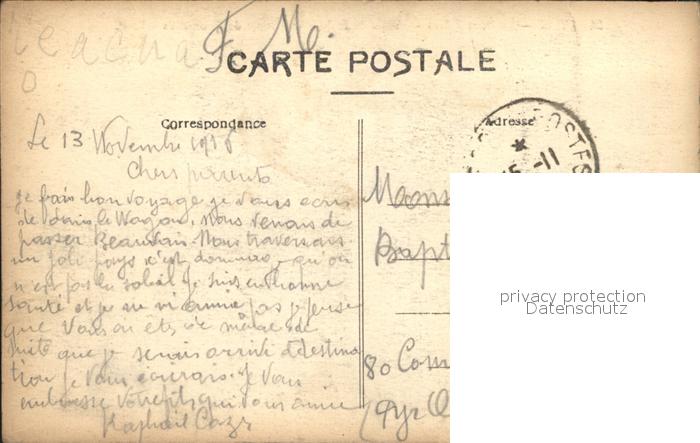 F. M.
CARTE POSTALE
Correspondance
Adresse
POSTES
15 -11
Le 13 Novembre 1916
Chers parents
je fais bon voyage je vous ecris
de dans le Wagon. Nous venons de
passer Beauvais. Nous traversons
un joli pays c'est domage qu'on
n'est pas du soleil je suis en bonne
santé et je ne m'ennuie pas je pense
que Vous en êtes de même
suite que je serais arrivé a destina
tion je vous ecrirais. Je Vous
embrasse Votre fils qui vous aime
Raphaël
Mons
Bapt
80 Com
(Pyr O
privacy protection
Datenschutz